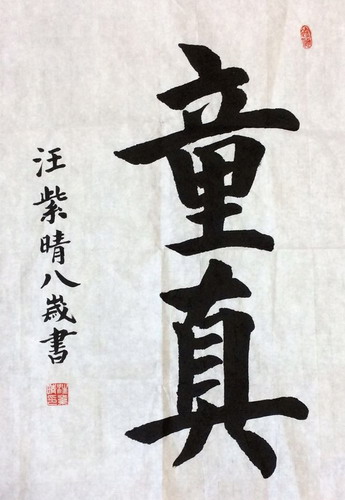 童真
汪紫晴八歲書